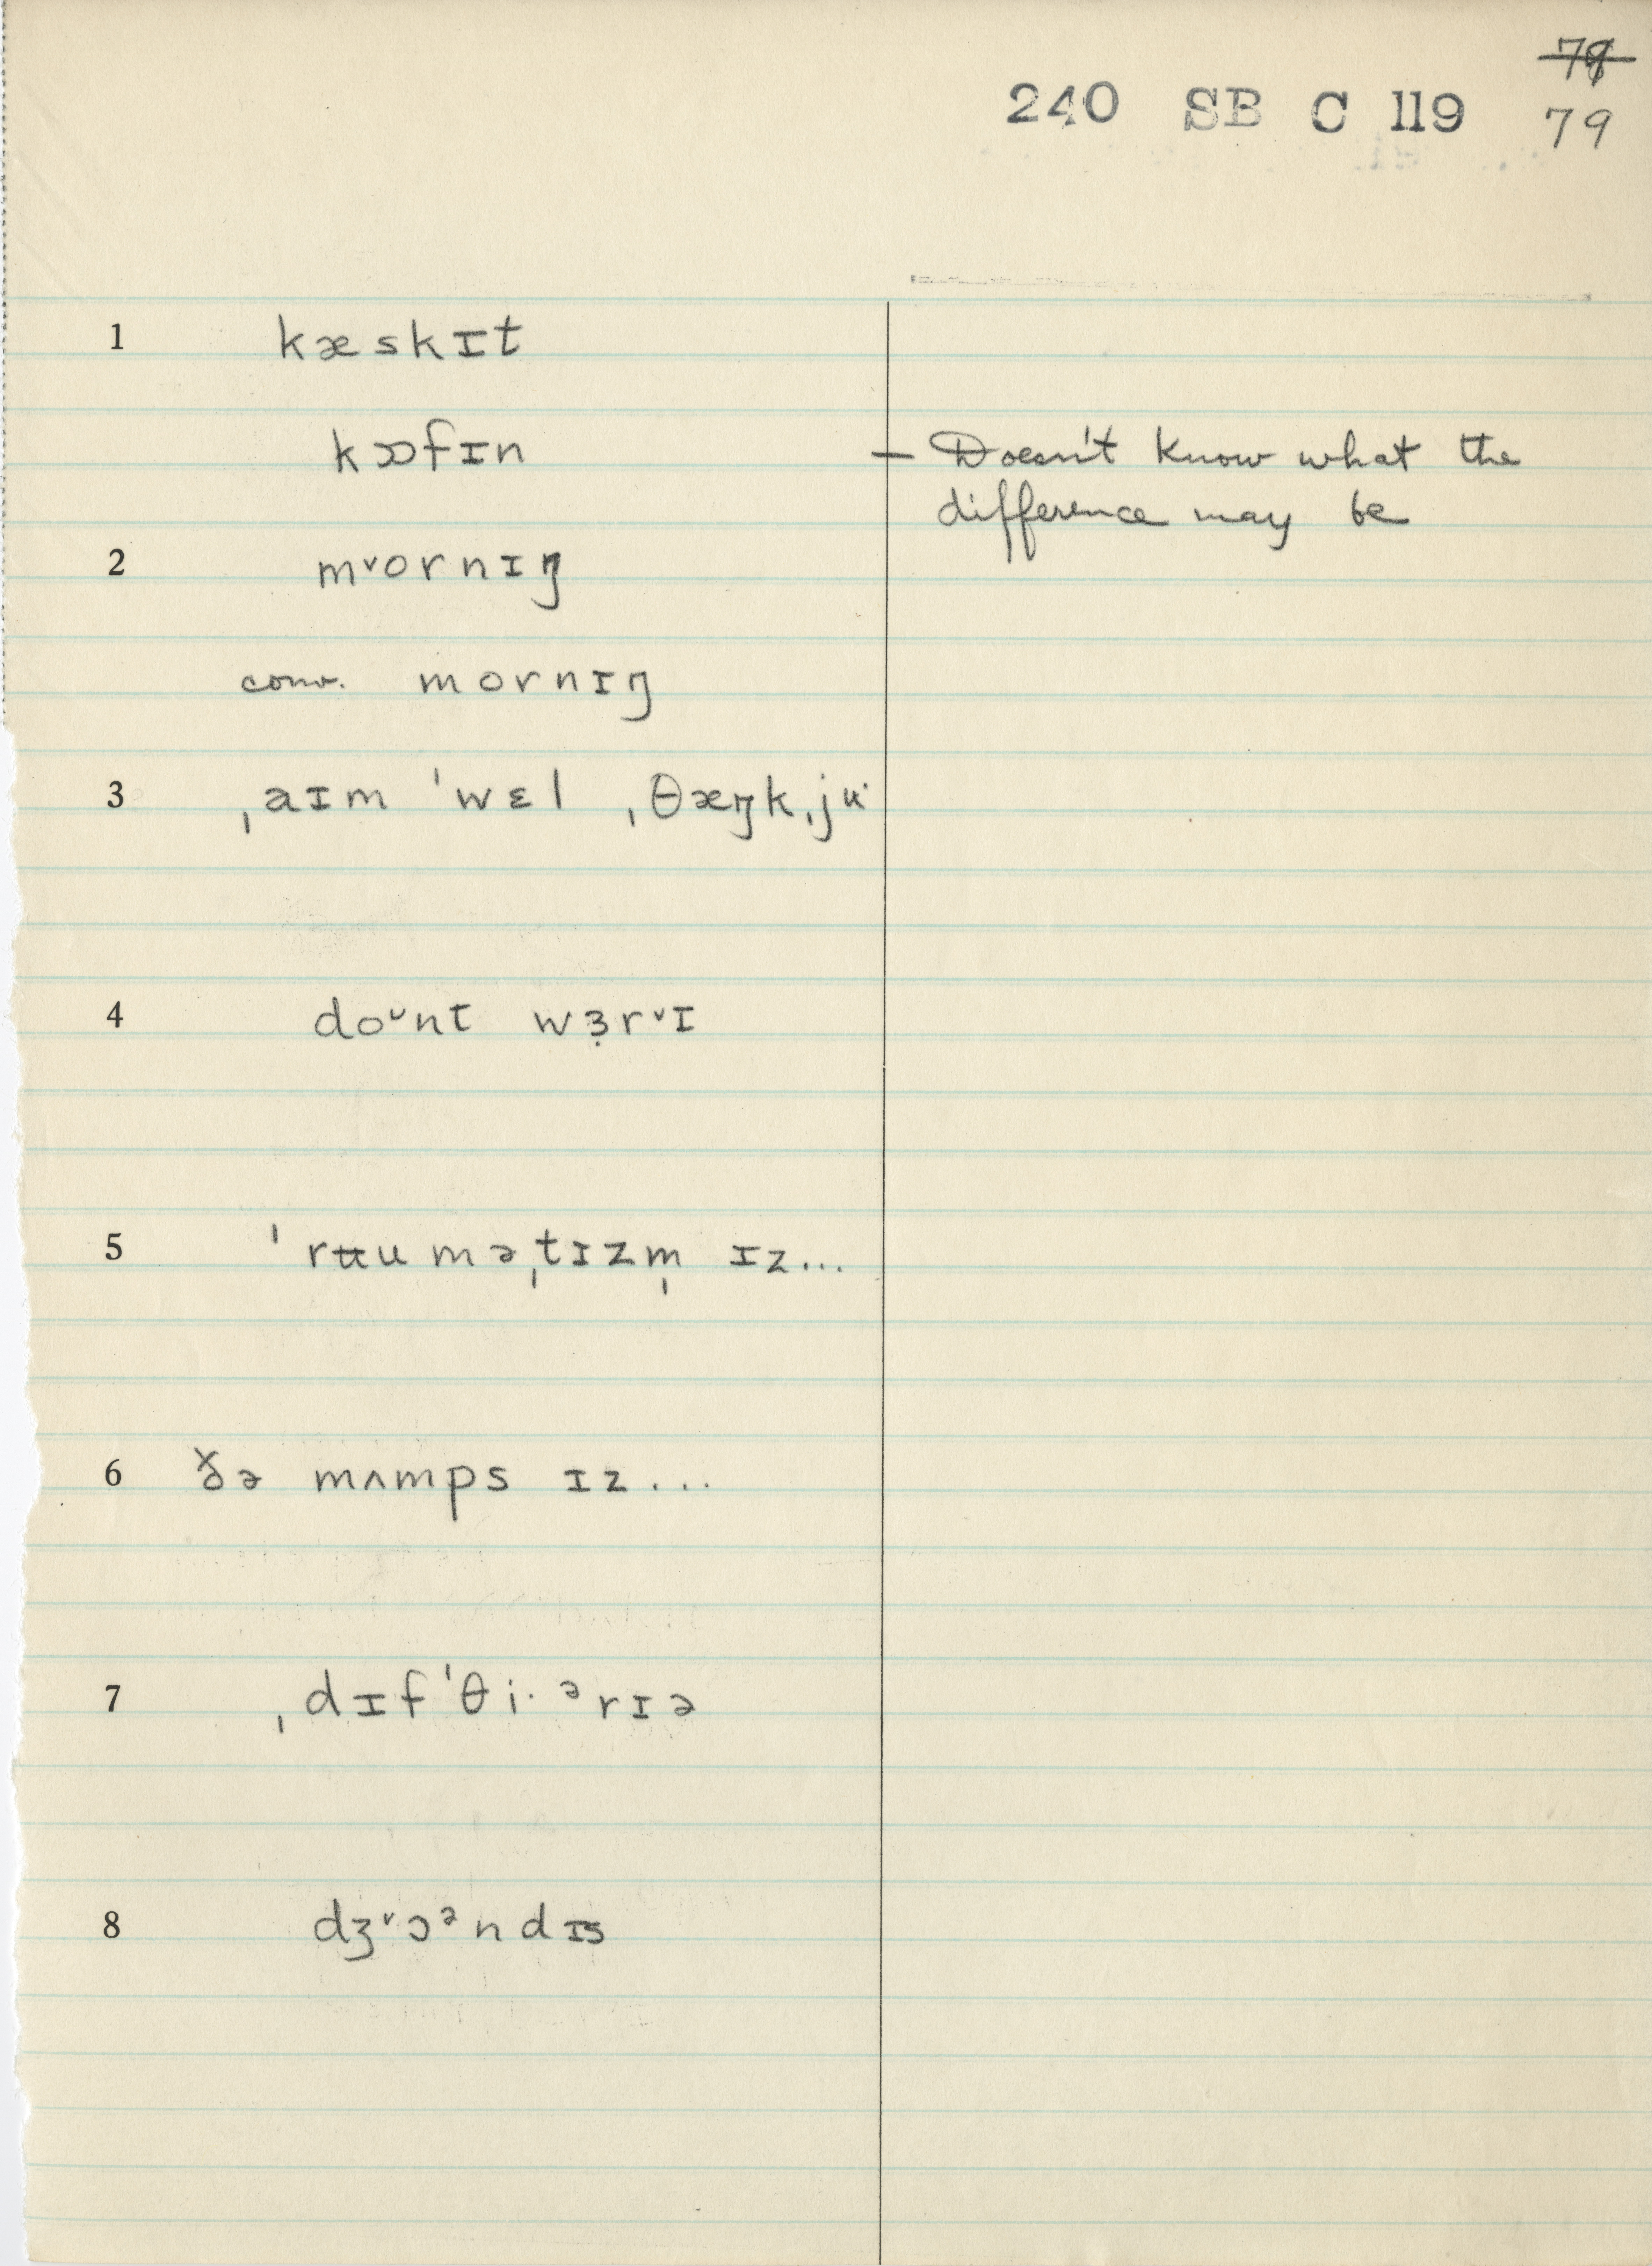 7̶9̶
240 SB C 119 79
1 kæskɪt
kɒfɪn — Doesn't know what the
difference may be
2 mᵛornɪŋ
conv. mornɪŋ
3 ˌaɪm ˈwɛl ˌθæŋkˌjʉ·
4 doᵘnt wɜ̣rᵛɪ
5 ˈrʉuməˌtɪzm̩ ɪz...
6 ðə mʌmps ɪz...
7 ˌdɪfˈθi·ᵊrɪə
8 dʒᵛɔᵊndɪs